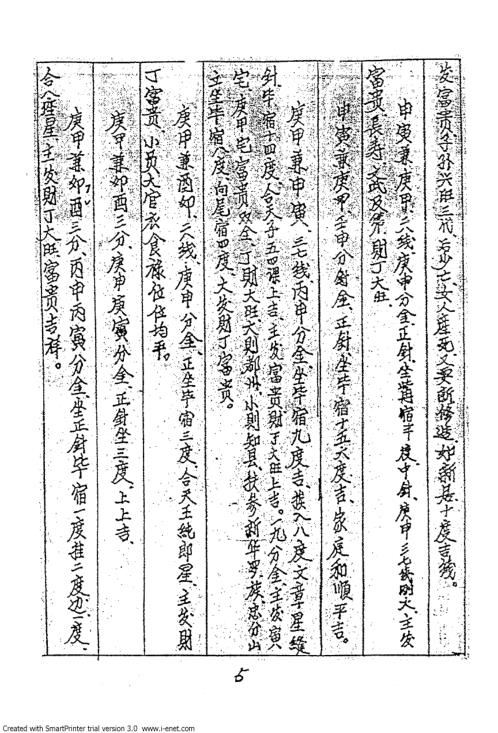 发富贵子孙兴旺三代、后少亡、女人产死、又要新修造、如新基十度吉线。
申寅兼庚甲、二八线庚申分金、正针坐觜宿半度中针、庚甲三七线阴火、主发
富贵、長寿、文武及第、财丁大旺、
申寅兼庚甲、壬申分針金、正針坐毕宿十五六度吉、家庭和順平吉。
庚甲兼申寅、三七线、丙申分金、坐毕宿九度吉、挨入八度文章星縫
針毕宿十四度、合天子五四課上吉、主发富贵财丁大旺上吉。一九分金、主发寅八
宅、庚甲宅、富贵双全、丁财大旺、大則都州、小則知县、
主坐毕宿八度、向尾宿四度、大发财丁富贵。
庚甲兼酉卯、二八线、庚申分金、正坐毕宿三度、合天王純郎星、主发财
丁富贵、小员大官衣食禄位位均平。
庚甲兼卯酉三分、庚申庚寅分金、正針坐三度、上上吉、
庚甲兼卯酉三分、丙申丙寅分金、坐正針毕宿一度挂二度边、一度、
合八座星、主发财丁大旺、富贵吉祥。
5
Created with SmartPrinter trial version 3.0 www.i-enet.com